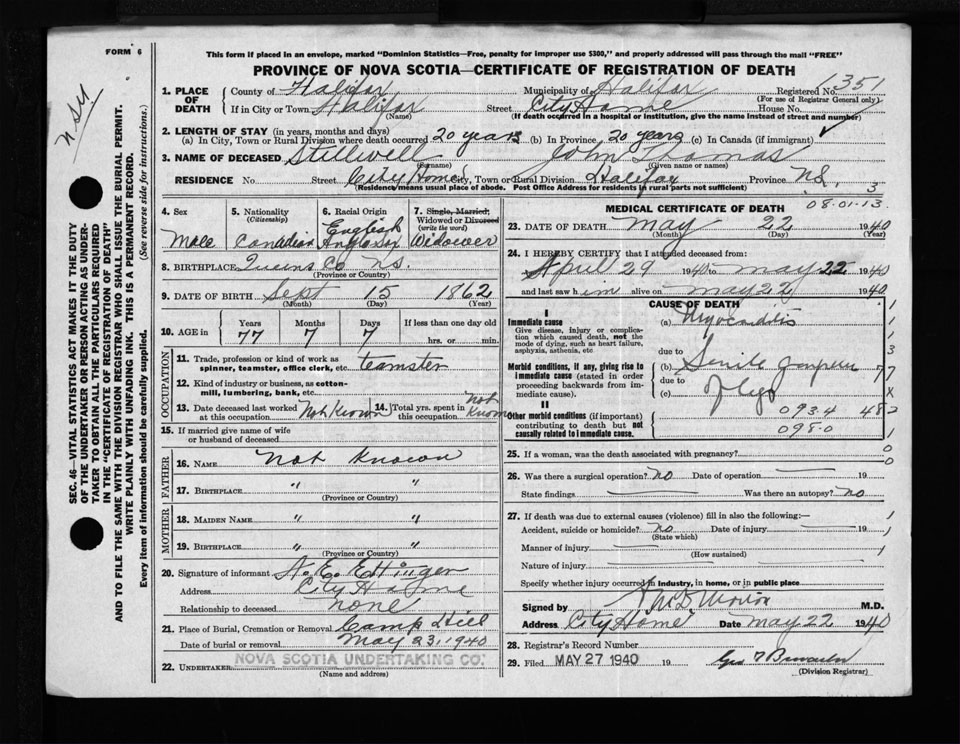 FORM 6
This form if placed in an envelope, marked "Dominion Statistics—Free, penalty for improper use $300," and properly addressed will pass through the mail "FREE"
PROVINCE OF NOVA SCOTIA—CERTIFICATE OF REGISTRATION OF DEATH
N.S.U.
SEC. 46—VITAL STATISTICS ACT MAKES IT THE DUTY
OF THE UNDERTAKER OR PERSON ACTING AS UNDER-
TAKER TO OBTAIN ALL THE PARTICULARS REQUIRED
IN THE "CERTIFICATE OF REGISTRATION OF DEATH"
AND TO FILE THE SAME WITH THE DIVISION REGISTRAR WHO SHALL ISSUE THE BURIAL PERMIT.
WRITE PLAINLY WITH UNFADING INK. THIS IS A PERMANENT RECORD.
Every item of information should be carefully supplied. (See reverse side for instructions.)
1. PLACE OF DEATH County of Halifax Municipality of Halifax Registered No. 1351
(For use of Registrar General only)
If in City or Town Halifax Street City Home House No.
(Name) (If death occurred in a hospital or institution, give the name instead of street and number)
2. LENGTH OF STAY (in years, months and days)
(a) In City, Town or Rural Division where death occurred 20 years (b) In Province 20 years (c) In Canada (if immigrant)
3. NAME OF DECEASED Stillwell John Thomas
(Surname) (Given name or names)
RESIDENCE No Street City Home City, Town or Rural Division Halifax Province N.S. 3
(Residence means usual place of abode. Post Office Address for residents in rural parts not sufficient)
4. Sex 5. Nationality (Citizenship) 6. Racial Origin 7. Single, Married, Widowed or Divorced (write the word)
Male Canadian English Anglo Sax Widower
8. BIRTHPLACE Queens Co N.S.
(Province or Country)
9. DATE OF BIRTH Sept 15 1862
(Month) (Day) (Year)
10. AGE in Years Months Days If less than one day old
77 7 7 hrs. or min.
OCCUPATION
11. Trade, profession or kind of work as spinner, teamster, office clerk, etc. teamster
12. Kind of industry or business, as cotton-mill, lumbering, bank, etc.
13. Date deceased last worked at this occupation Not Known 14. Total yrs. spent in this occupation Not Known
15. If married give name of wife or husband of deceased
FATHER
16. NAME Not Known
17. BIRTHPLACE " "
(Province or Country)
MOTHER
18. MAIDEN NAME " "
19. BIRTHPLACE " "
(Province or Country)
20. Signature of informant A. E. Ettinger
Address City Home
Relationship to deceased none
21. Place of Burial, Cremation or Removal Camp Hill
Date of burial or removal May 23, 1940
22. UNDERTAKER NOVA SCOTIA UNDERTAKING CO.
(Name and address)
MEDICAL CERTIFICATE OF DEATH 08.01.13.
23. DATE OF DEATH May 22 1940
(Month) (Day) (Year)
24. I HEREBY CERTIFY that I attended deceased from:
April 29 1940 to May 22 1940
and last saw him alive on May 22 1940
CAUSE OF DEATH
I
Immediate cause (a) Myocarditis
Give disease, injury or complication which caused death, not the mode of dying, such as heart failure, asphyxia, asthenia, etc
due to
Morbid conditions, if any, giving rise to immediate cause (stated in order proceeding backwards from immediate cause). (b) Senile gangrene
due to
(c) of legs
II
Other morbid conditions (if important) contributing to death but not causally related to immediate cause.
093.4 482
098.0
25. If a woman, was the death associated with pregnancy?
26. Was there a surgical operation? no Date of operation 19
State findings Was there an autopsy? no
27. If death was due to external causes (violence) fill in also the following:—
Accident, suicide or homicide? no Date of injury 19
(State which)
Manner of injury
(How sustained)
Nature of injury
Specify whether injury occurred in industry, in home, or in public place
Signed by M.D.
Address City Home Date May 22 1940
28. Registrar's Record Number
29. Filed MAY 27 1940 19
(Division Registrar)